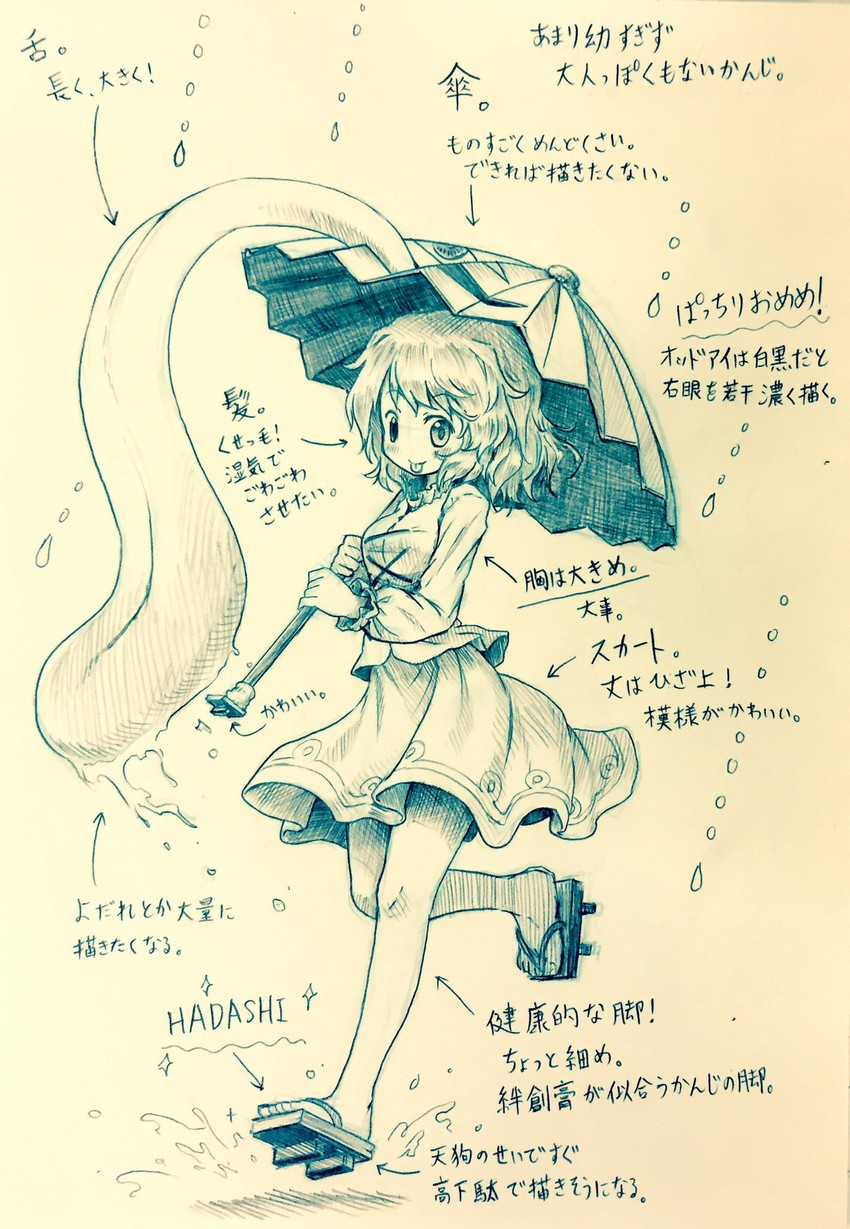 あまり幼すぎず
大人っぽくもないかんじ。
舌。
長く、大きく!
傘。
ものすごくめんどくさい。
できれば描きたくない。
ぱっちりおめめ!
オッドアイは白黒だと
右眼を若干濃く描く。
髪。
くせっ毛!
湿気で
ごわごわ
させたい。
胸は大きめ。
大事。
スカート。
丈はひざ上!
模様がかわいい。
かわいい。
よだれとか大量に
描きたくなる。
HADASHI
健康的な脚!
ちょっと細め。
絆創膏が似合うかんじの脚。
天狗のせいですぐ
高下駄で描きそうになる。